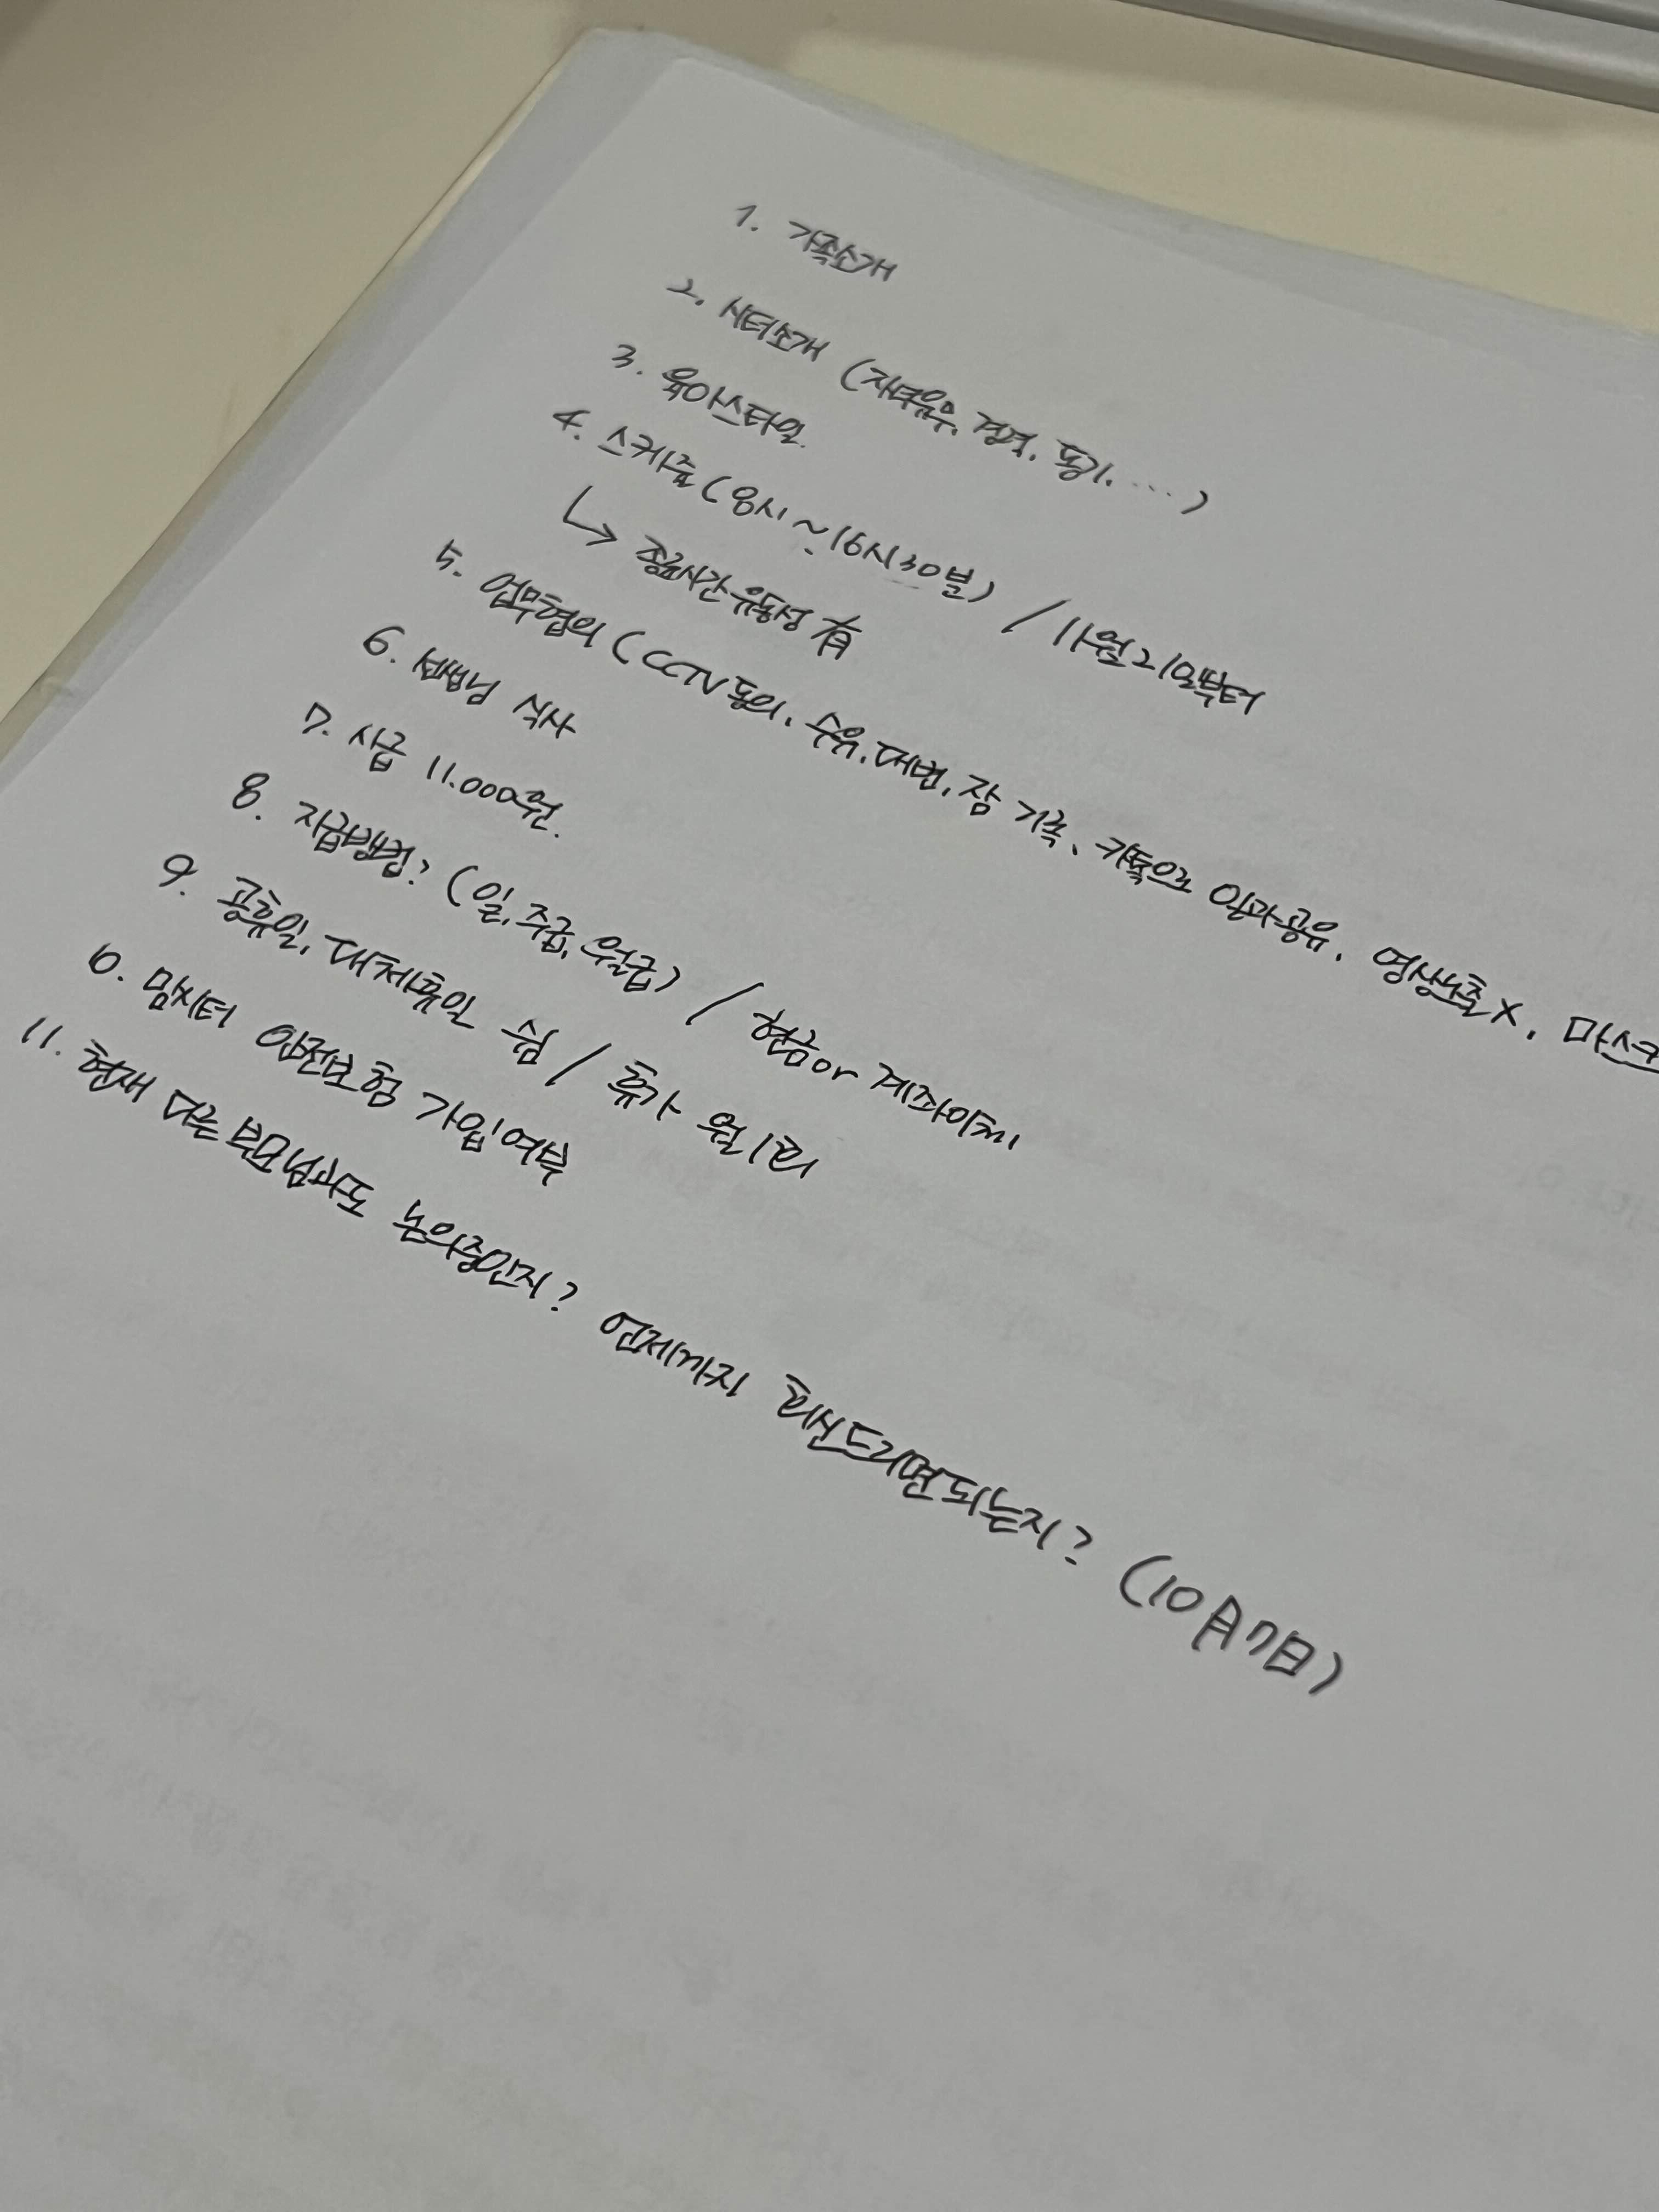 1. 가족소개
2. 시터소개 (자녀유무, 경력, 동기, ...)
3. 육아스타일.
4. 스케쥴 (8시~16시30분) / 11월21일부터
↳ 종료시간 유동성 有
5. 업무협의 (CCTV동의, 수유, 대변, 잠 기록, 카톡으로 일과공유, 영상노출X, 마스크
6. 쌤님 식사
7. 시급 11,000원.
8. 지급방법? (일, 주급, 월급) / 현금or 계좌이체
9. 공휴일, 대체휴일 쉼 / 휴가 월1회
10. 맘시터 안전보험 가입여부
11. 현재 다른 부모님과도 논의중인지? 언제까지 회신드리면되는지? (10月7日)